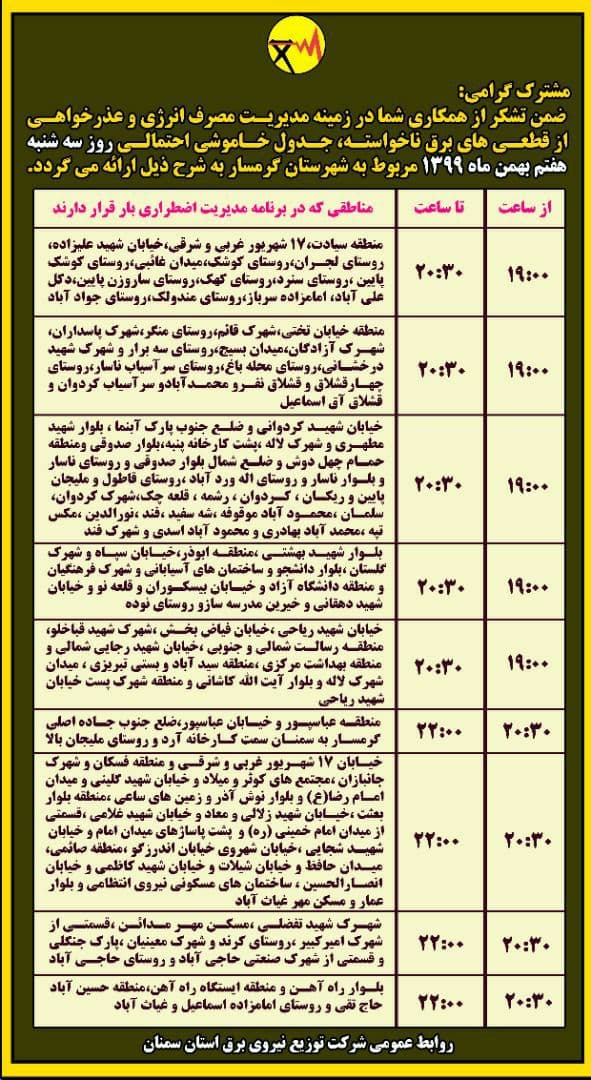 مشترک گرامی:
ضمن تشکر از همکاری شما در زمینه مدیریت مصرف انرژی و عذرخواهی
از قطعی های برق ناخواسته، جدول خاموشی احتمالی روز سه شنبه
هفتم بهمن ماه ۱۳۹۹ مربوط به شهرستان گرمسار به شرح ذیل ارائه می گردد.
از ساعت تا ساعت مناطقی که در برنامه مدیریت اضطراری بار قرار دارند
۱۹:۰۰ ۲۰:۳۰
منطقه سیادت،۱۷ شهریور غربی و شرقی،خیابان شهید علیزاده،
روستای لجران،روستای کوشک،میدان غائبی،روستای کوشک
پایین ،روستای سنرد،روستای کهک،روستای ساروزن پایین،دکل
علی آباد، امامزاده سرباز،روستای مندولک،روستای جواد آباد
۱۹:۰۰ ۲۰:۳۰
منطقه خیابان تختی،شهرک قائم،روستای منگر،شهرک پاسداران،
شهرک آزادگان،میدان بسیج،روستای سه برار و شهرک شهید
درخشانی،روستای محله باغ،روستای سرآسیاب ناسار،روستای
چهارقشلاق و قشلاق نفرو محمدآبادو سرآسیاب کردوان و
قشلاق آق اسماعیل
۱۹:۰۰ ۲۰:۳۰
خیابان شهید کردوانی و ضلع جنوب پارک آبنما ، بلوار شهید
مطهری و شهرک لاله ،پشت کارخانه پنبه،بلوار صدوقی ومنطقه
حمام چهل دوش و ضلع شمال بلوار صدوقی و روستای ناسار
و بلوار ناسار و روستای اله ورد آباد ،روستای فاطول و ملیجان
پایین و ریکان ، کردوان ، رشمه ، قلعه چک،شهرک کردوان،
سلمان ،محمود آباد موقوفه ،شه سفید ،فند ،نورالدین ،مکس
تپه ،محمد آباد بهادری و محمود آباد اسدی و شهرک فند
۱۹:۰۰ ۲۰:۳۰
بلوار شهید بهشتی ،منطقه ابوذر،خیابان سپاه و شهرک
گلستان ،بلوار دانشجو و ساختمان های آسیابانی و شهرک فرهنگیان
و منطقه دانشگاه آزاد و خیابان بیسکوران و قلعه نو و خیابان
شهید دهقانی و خیرین مدرسه سازو روستای نوده
۱۹:۰۰ ۲۰:۳۰
خیابان شهید ریاحی ،خیابان فیاض بخش ،شهرک شهید قباخلو،
منطقه رسالت شمالی و جنوبی ،خیابان شهید رجایی شمالی و
منطقه بهداشت مرکزی ،منطقه سید آباد و بستی تبریزی ، میدان
شهرک لاله و بلوار آیت الله کاشانی و منطقه شهرک پست خیابان
شهید ریاحی
۲۰:۳۰ ۲۲:۰۰
منطقه عباسپور و خیابان عباسپور،ضلع جنوب جاده اصلی
گرمسار به سمنان سمت کارخانه آرد و روستای ملیجان بالا
۲۰:۳۰ ۲۲:۰۰
خیابان ۱۷ شهریور غربی و شرقی و منطقه فسکان و شهرک
جانبازان ،مجتمع های کوثر و میلاد و خیابان شهید کلینی و میدان
امام رضا(ع) و بلوار نوش آذر و زمین های ساعی ،منطقه بلوار
بعثت ،خیابان شهید زلالی و معاد و خیابان شهید غلامی ،قسمتی
از میدان امام خمینی (ره) و پشت پاساژهای میدان امام و خیابان
شهید شجایی ،خیابان شهروی خیابان اندرزگو ،منطقه صائمی،
میدان حافظ و خیابان شیلات و خیابان شهید کاظمی و خیابان
انصارالحسین ، ساختمان های مسکونی نیروی انتظامی و بلوار
عمار و مسکن مهر غیاث آباد
۲۰:۳۰ ۲۲:۰۰
شهرک شهید تفضلی ،مسکن مهر مدائن ،قسمتی از
شهرک امیرکبیر ،روستای کرند و شهرک معینیان ،پارک جنگلی
و قسمتی از شهرک صنعتی حاجی آباد و روستای حاجی آباد
۲۰:۳۰ ۲۲:۰۰
بلوار راه آهن و منطقه ایستگاه راه آهن،منطقه حسین آباد
حاج تقی و روستای امامزاده اسماعیل و غیاث آباد
روابط عمومی شرکت توزیع نیروی برق استان سمنان